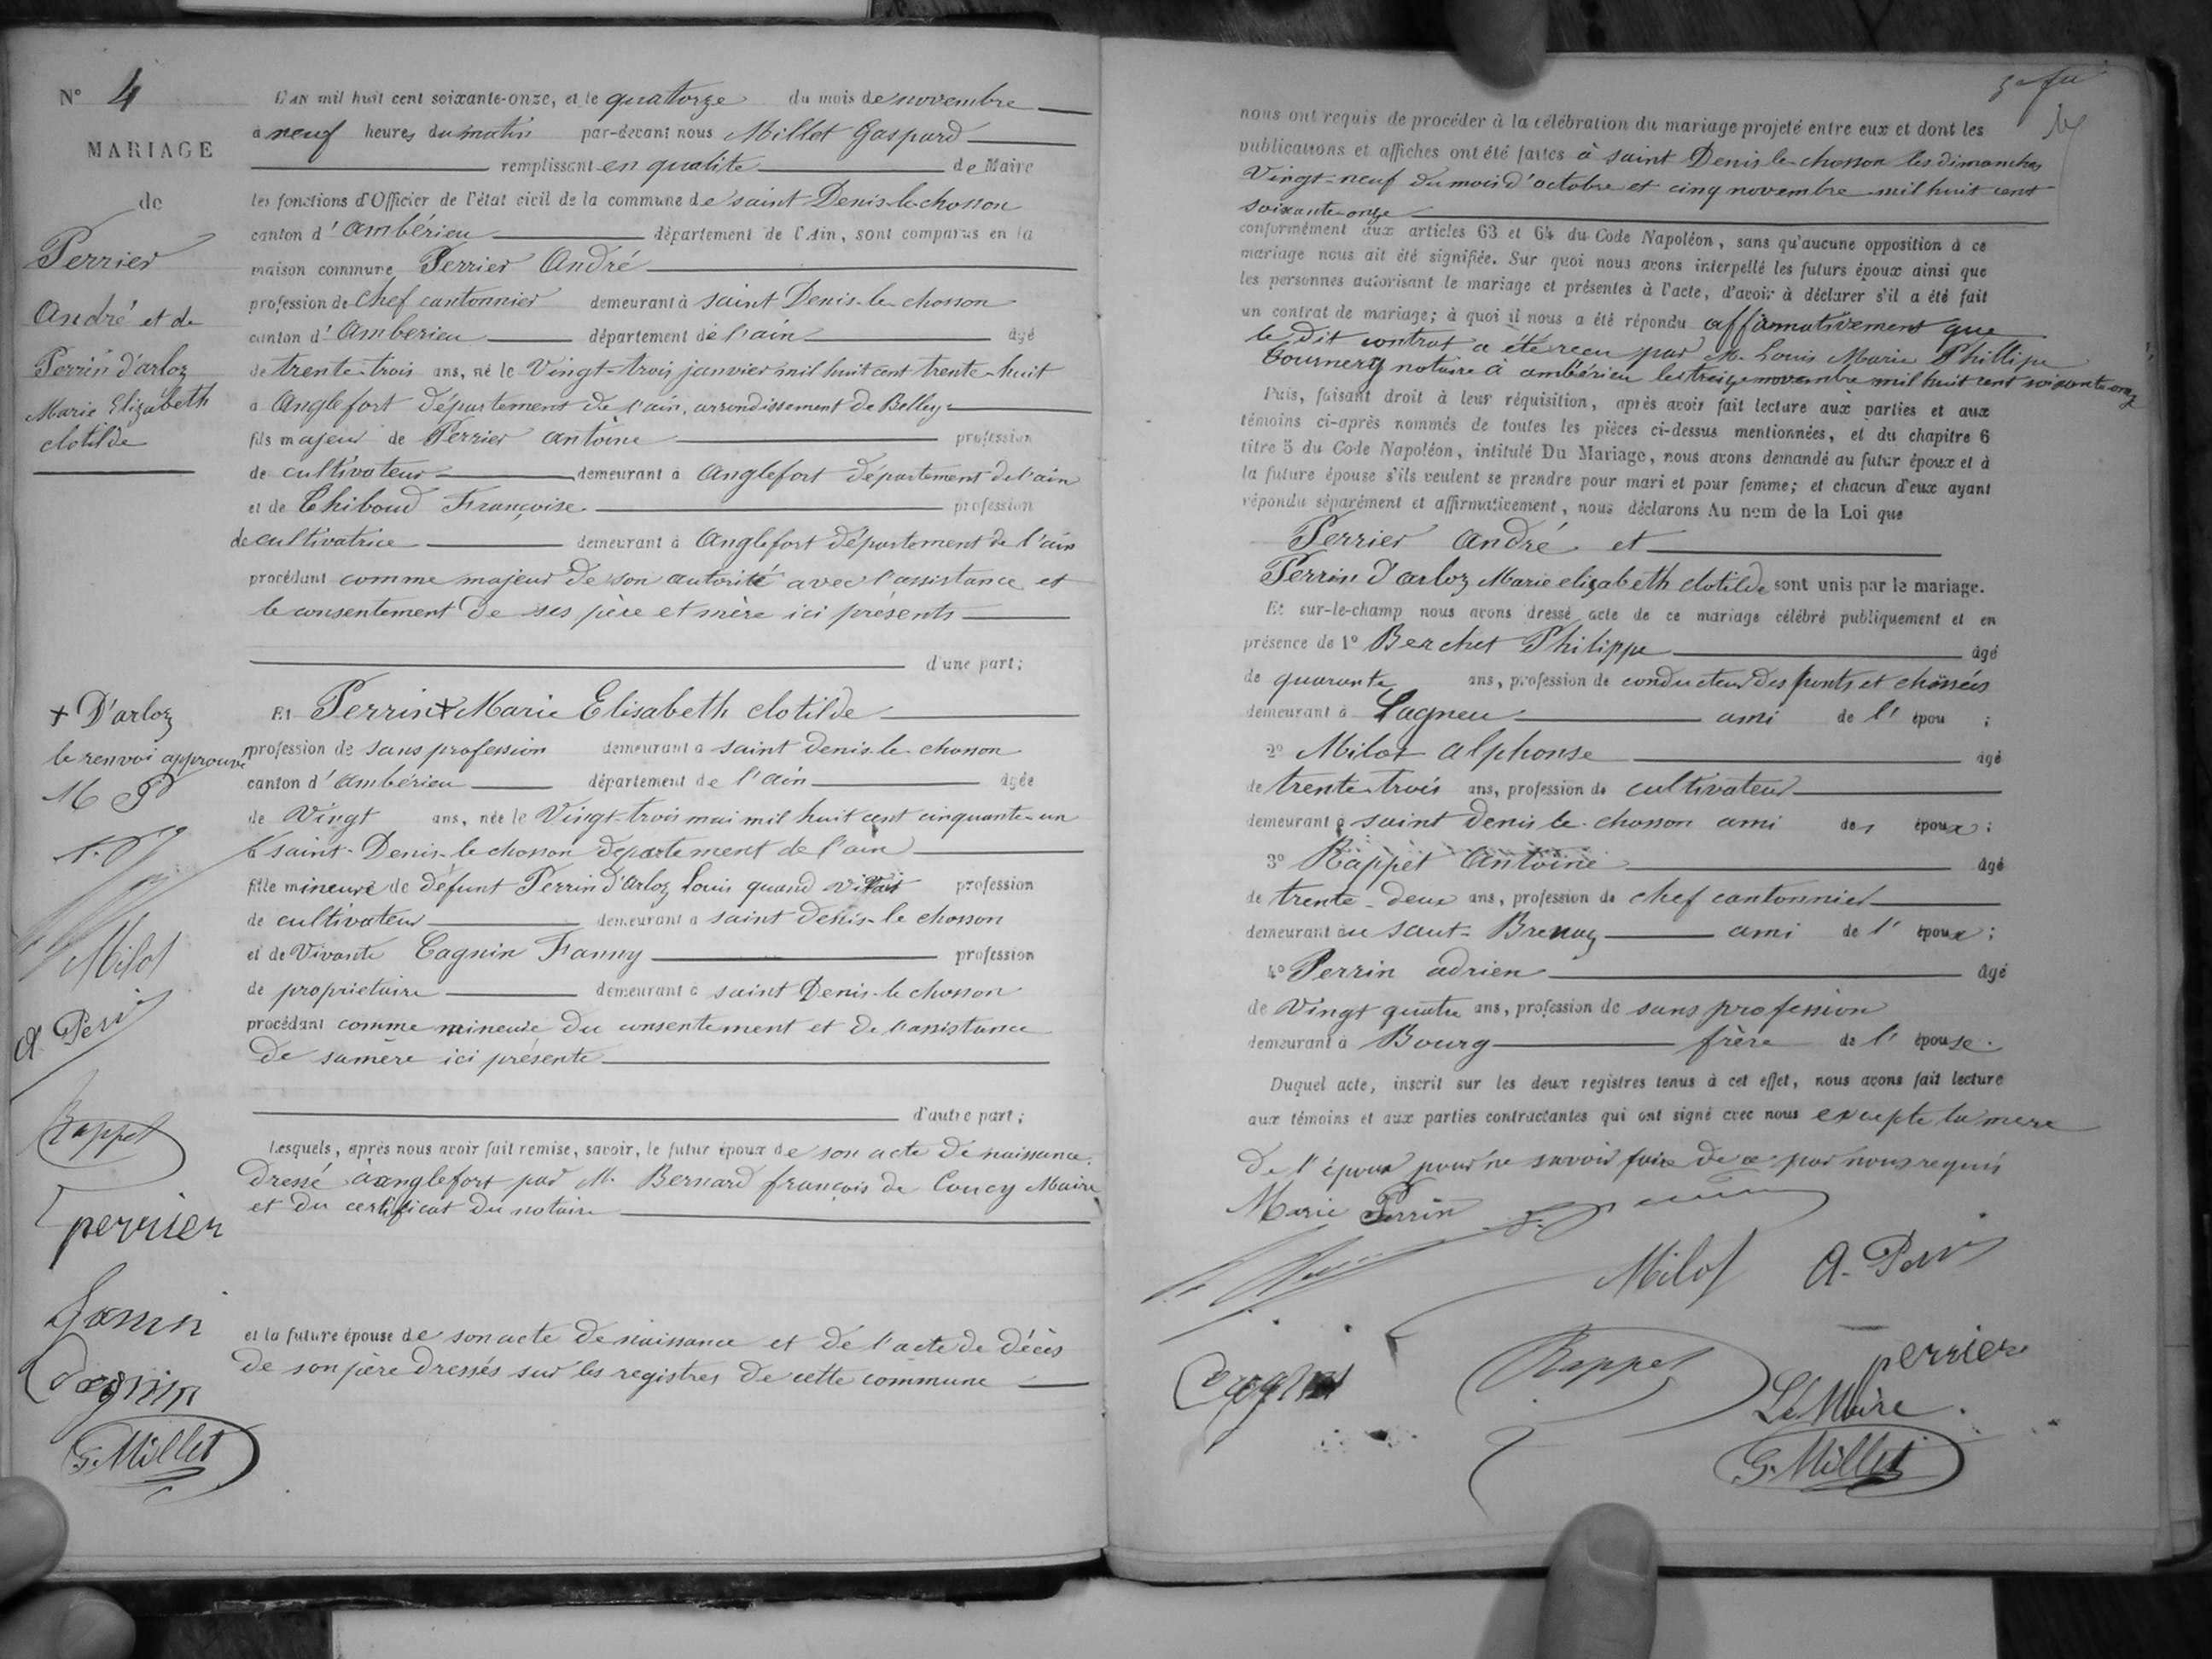 N° 4
MARIAGE
de
Perrier
André et de
Perrin d'arloz
Marie Elizabeth
clotilde
+ D'arloz
le renvoi approuvé
M P
Milot
A. Perrin
Rappet
perrier
Cagnin
G. Millet
L'AN mil huit cent soixante-onze, et le quatorze du mois de novembre
à neuf heures du matin par-devant nous Millet Gaspard
remplissant en qualité de Maire
les fonctions d'Officier de l'état civil de la commune de saint Denis-le-chosson
canton d'ambérieu département de l'Ain, sont comparus en la
maison commune Perrier André
profession de chef cantonnier demeurant à saint Denis-le-chosson
canton d'Ambérieu département de l'ain âgé
de trente-trois ans, né le Vingt-trois janvier mil huit cent trente-huit
à Anglefort département de l'ain, arrondissement de Belley
fils majeur de Perrier antoine profession
de cultivateur demeurant à Anglefort département de l'ain
et de Thiboud Françoise profession
de cultivatrice demeurant à Anglefort département de l'ain
procédant comme majeur de son autorité avec l'assistance et
le consentement de ses père et mère ici présents
d'une part;
Et Perrin + Marie Elisabeth clotilde
profession de sans profession demeurant à saint denis-le-chosson
canton d'ambérieu département de l'ain âgée
de Vingt ans, née le Vingt-trois mai mil huit cent cinquante-un
à saint-Denis-le-chosson département de l'ain
fille mineure de défunt Perrin d'Arloz Louis quand vivait profession
de cultivateur demeurant à saint denis-le chosson
et de Vivante Cagnin Fanny profession
de propriétaire demeurant à saint Denis-le chosson
procédant comme mineure du consentement et de l'assistance
de sa mère ici présente
d'autre part;
Lesquels, après nous avoir fait remise, savoir, le futur époux de son acte de naissance
dressé à anglefort par M. Bernard françois de Coucy Maire
et du certificat du notaire
et la future épouse de son acte de naissance et de l'acte de décès
de son père dressés sur les registres de cette commune
nous ont requis de procéder à la célébration du mariage projeté entre eux et dont les
publications et affiches ont été faites à saint Denis-le-chosson les dimanches
Vingt-neuf du mois d'octobre et cinq novembre mil huit cent
soixante-onze
conformément aux articles 63 et 64 du Code Napoléon, sans qu'aucune opposition à ce
mariage nous ait été signifiée. Sur quoi nous avons interpellé les futurs époux ainsi que
les personnes autorisant le mariage et présentes à l'acte, d'avoir à déclarer s'il a été fait
un contrat de mariage; à quoi il nous a été répondu affirmativement que
le dit contrat a été reçu par M. Louis Marie Phillipe
notaire à ambérieu le treize novembre mil huit cent soixante onze
Puis, faisant droit à leur réquisition, après avoir fait lecture aux parties et aux
témoins ci-après nommés de toutes les pièces ci-dessus mentionnées, et du chapitre 6
titre 5 du Code Napoléon, intitulé Du Mariage, nous avons demandé au futur époux et à
la future épouse s'ils veulent se prendre pour mari et pour femme; et chacun d'eux ayant
répondu séparément et affirmativement, nous déclarons Au nom de la Loi que
Perrier André et
Perrin d'arloz Marie elizabeth clotilde sont unis par le mariage.
Et sur-le-champ nous avons dressé acte de ce mariage célébré publiquement et en
présence de 1° Berchet Philippe âgé
de quarante ans, profession de conducteur des ponts et chaussées
demeurant à Lagneu ami de l' épou ;
2° Milot alphonse âgé
de trente-trois ans, profession de cultivateur
demeurant à saint denis le-chosson ami des époux;
3° Rappet Antoine âgé
de trente-deux ans, profession de chef cantonnier
demeurant au saut-Brenaz ami de l' époux;
4° Perrin adrien âgé
de Vingt quatre ans, profession de sans profession
demeurant à Bourg frère de l' épouse.
Duquel acte, inscrit sur les deux registres tenus à cet effet, nous avons fait lecture
aux témoins et aux parties contractantes qui ont signé avec nous excepté la mere
de l'époux pour ne savoir faire de ce par nous requis
Marie Perrin
Milot A. Perrin
Cagnin Rappet perrier
Le Maire
G. Millet